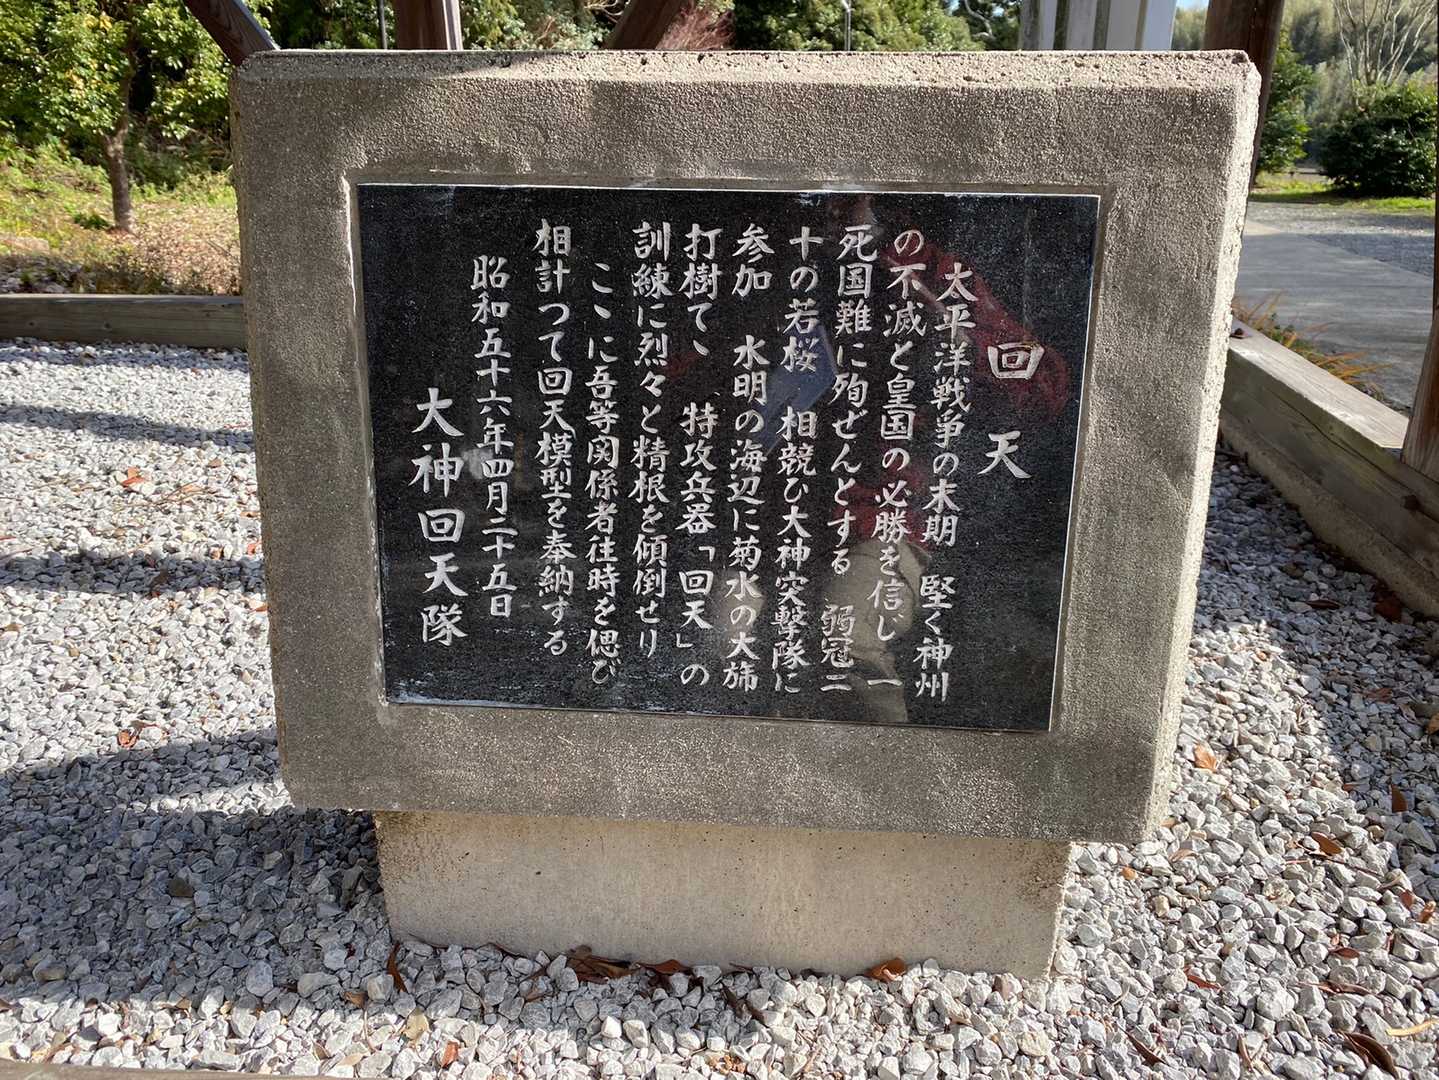 回天
太平洋戦争の末期　堅く神州
の不滅と皇国の必勝を信じ　一
死国難に殉ぜんとする　弱冠二
十の若桜　相競ひ大神突撃隊に
参加　水明の海辺に菊水の大旆
打樹て、特攻兵器「回天」の
訓練に烈々と精根を傾倒せり
こヽに吾等関係者往時を偲び
相計つて回天模型を奉納する
昭和五十六年四月二十五日
大神回天隊